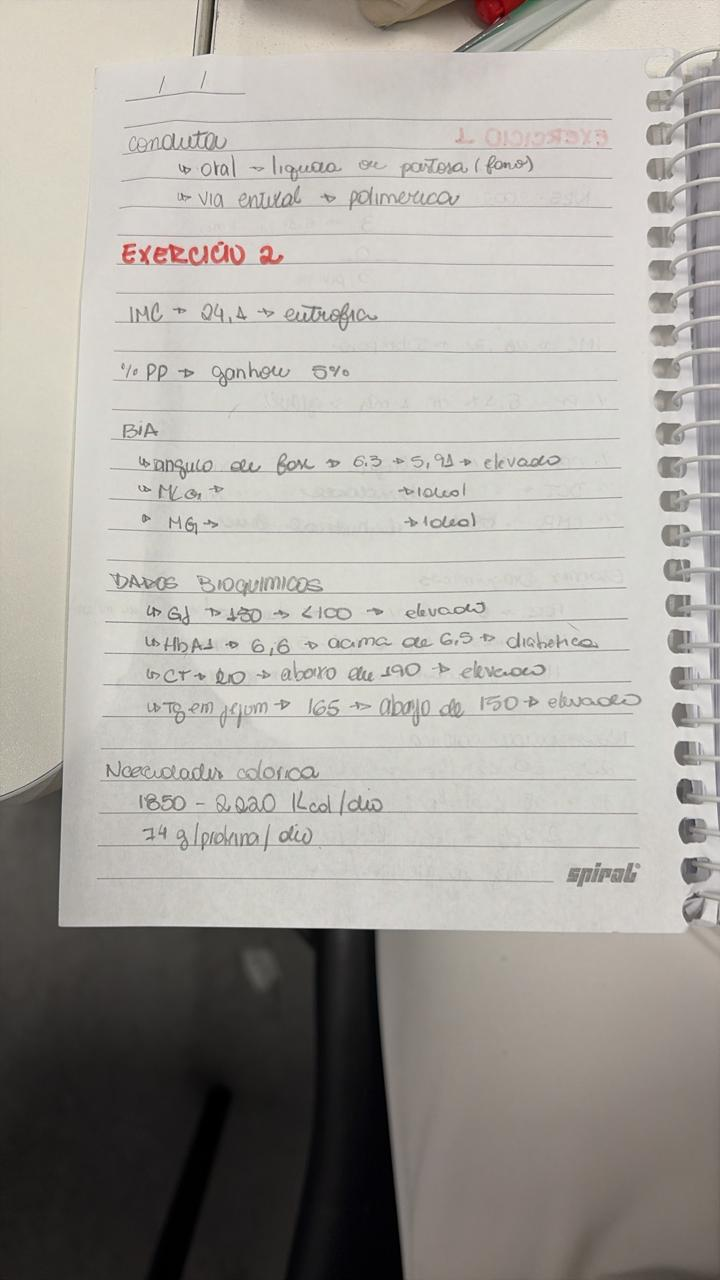 / /
conduta
↳ oral → liquida ou pastosa (fono)
↳ via enteral → polimerica
EXERCICIO 2
IMC → 24,1 → eutrofia
% PP → ganhou 5%
BIA
↳ angulo de fase → 6.3 → 5,91 → elevado
↳ MLG → → ideal
↳ MG → → ideal
DADOS BIOQUIMICOS
↳ GJ → 130 → <100 → elevado
↳ HbA1 → 6,6 → acima de 6,5 → diabetica
↳ CT → 210 → abaixo de 190 → elevado
↳ Tg em jejum → 165 → abaixo de 150 → elevado
Necessidades calorica
1850 - 2220 Kcal/dia
74 g/proteina/dia
spiral